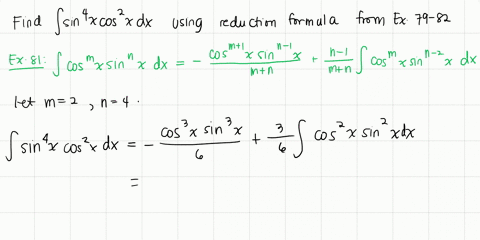 Find ∫sin⁴x cos²x dx using reduction formula from Ex. 79-82
Ex. 81: ∫ cosᵐx sinⁿx dx = - cosᵐ⁺¹x sinⁿ⁻¹x / m+n + n-1 / m+n ∫ cosᵐx sinⁿ⁻²x dx
Let m=2, n=4.
∫ sin⁴x cos²x dx = - cos³x sin³x / 6 + 3 / 6 ∫ cos²x sin²x dx
=